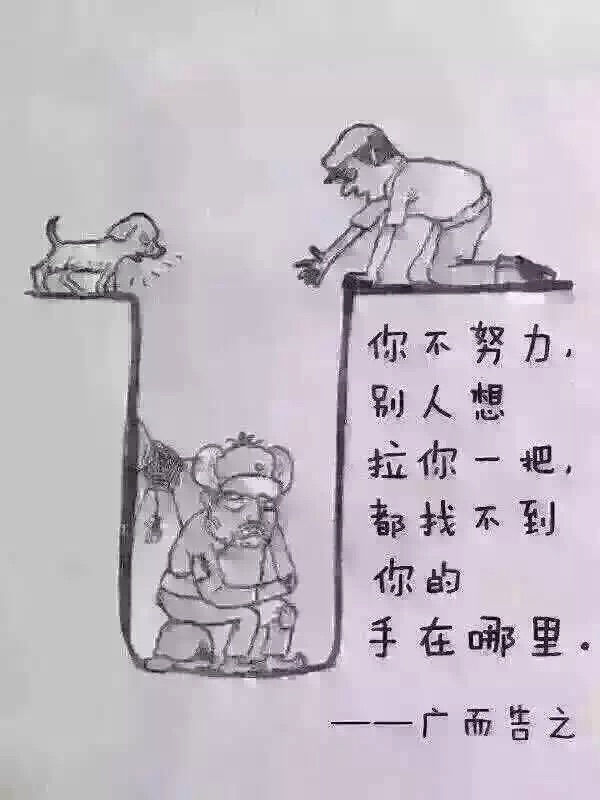 你不努力，
别人想
拉你一把，
都找不到
你的
手在哪里．
———广而告之